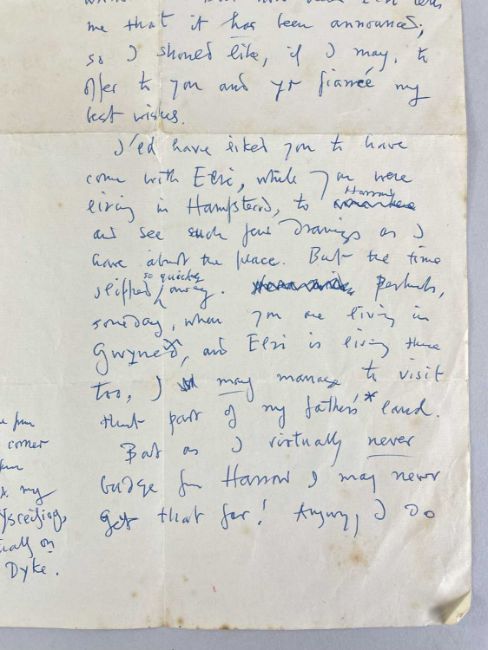 me that it has been announced;
so I should like, if I may, to
offer to you and yr fiancée my
best wishes.
I'ld have liked you to have
come with Elri, while you were
living in Hampstead, to Harrow
and see such few drawings as I
have about the place. But the time
slipped so quickly away. Perhaps,
someday, when you are living in
Gwynedd, and Elri is living there
too, I may manage to visit
that part of my father's* land.
But as I virtually never
budge from Harrow I may never
get that far! Anyway, I do
corner
my
ysceifiog,
ually on
Dyke.